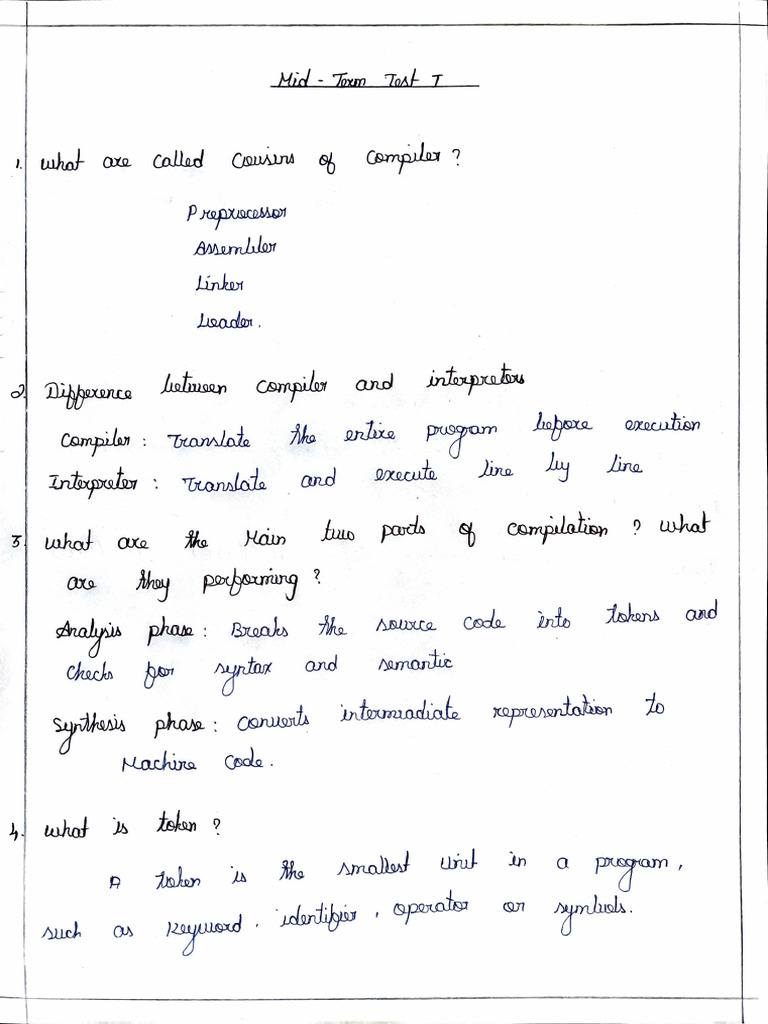 Mid - Term Test I
1. What are called Cousins of compiler ?
Preprocessor
Assembler
Linker
Loader.
2. Difference between compiler and interpreters
Compiler : Translate the entire program before execution
Interpreter : Translate and execute line by line
3. What are the Main two parts of compilation ? what
are they performing ?
Analysis phase : Breaks the source code into tokens and
checks for syntax and semantic
Synthesis phase : converts intermiadiate representation to
Machine code.
4. What is token ?
A token is the smallest unit in a program,
such as keyword, identifier, operator or symbols.